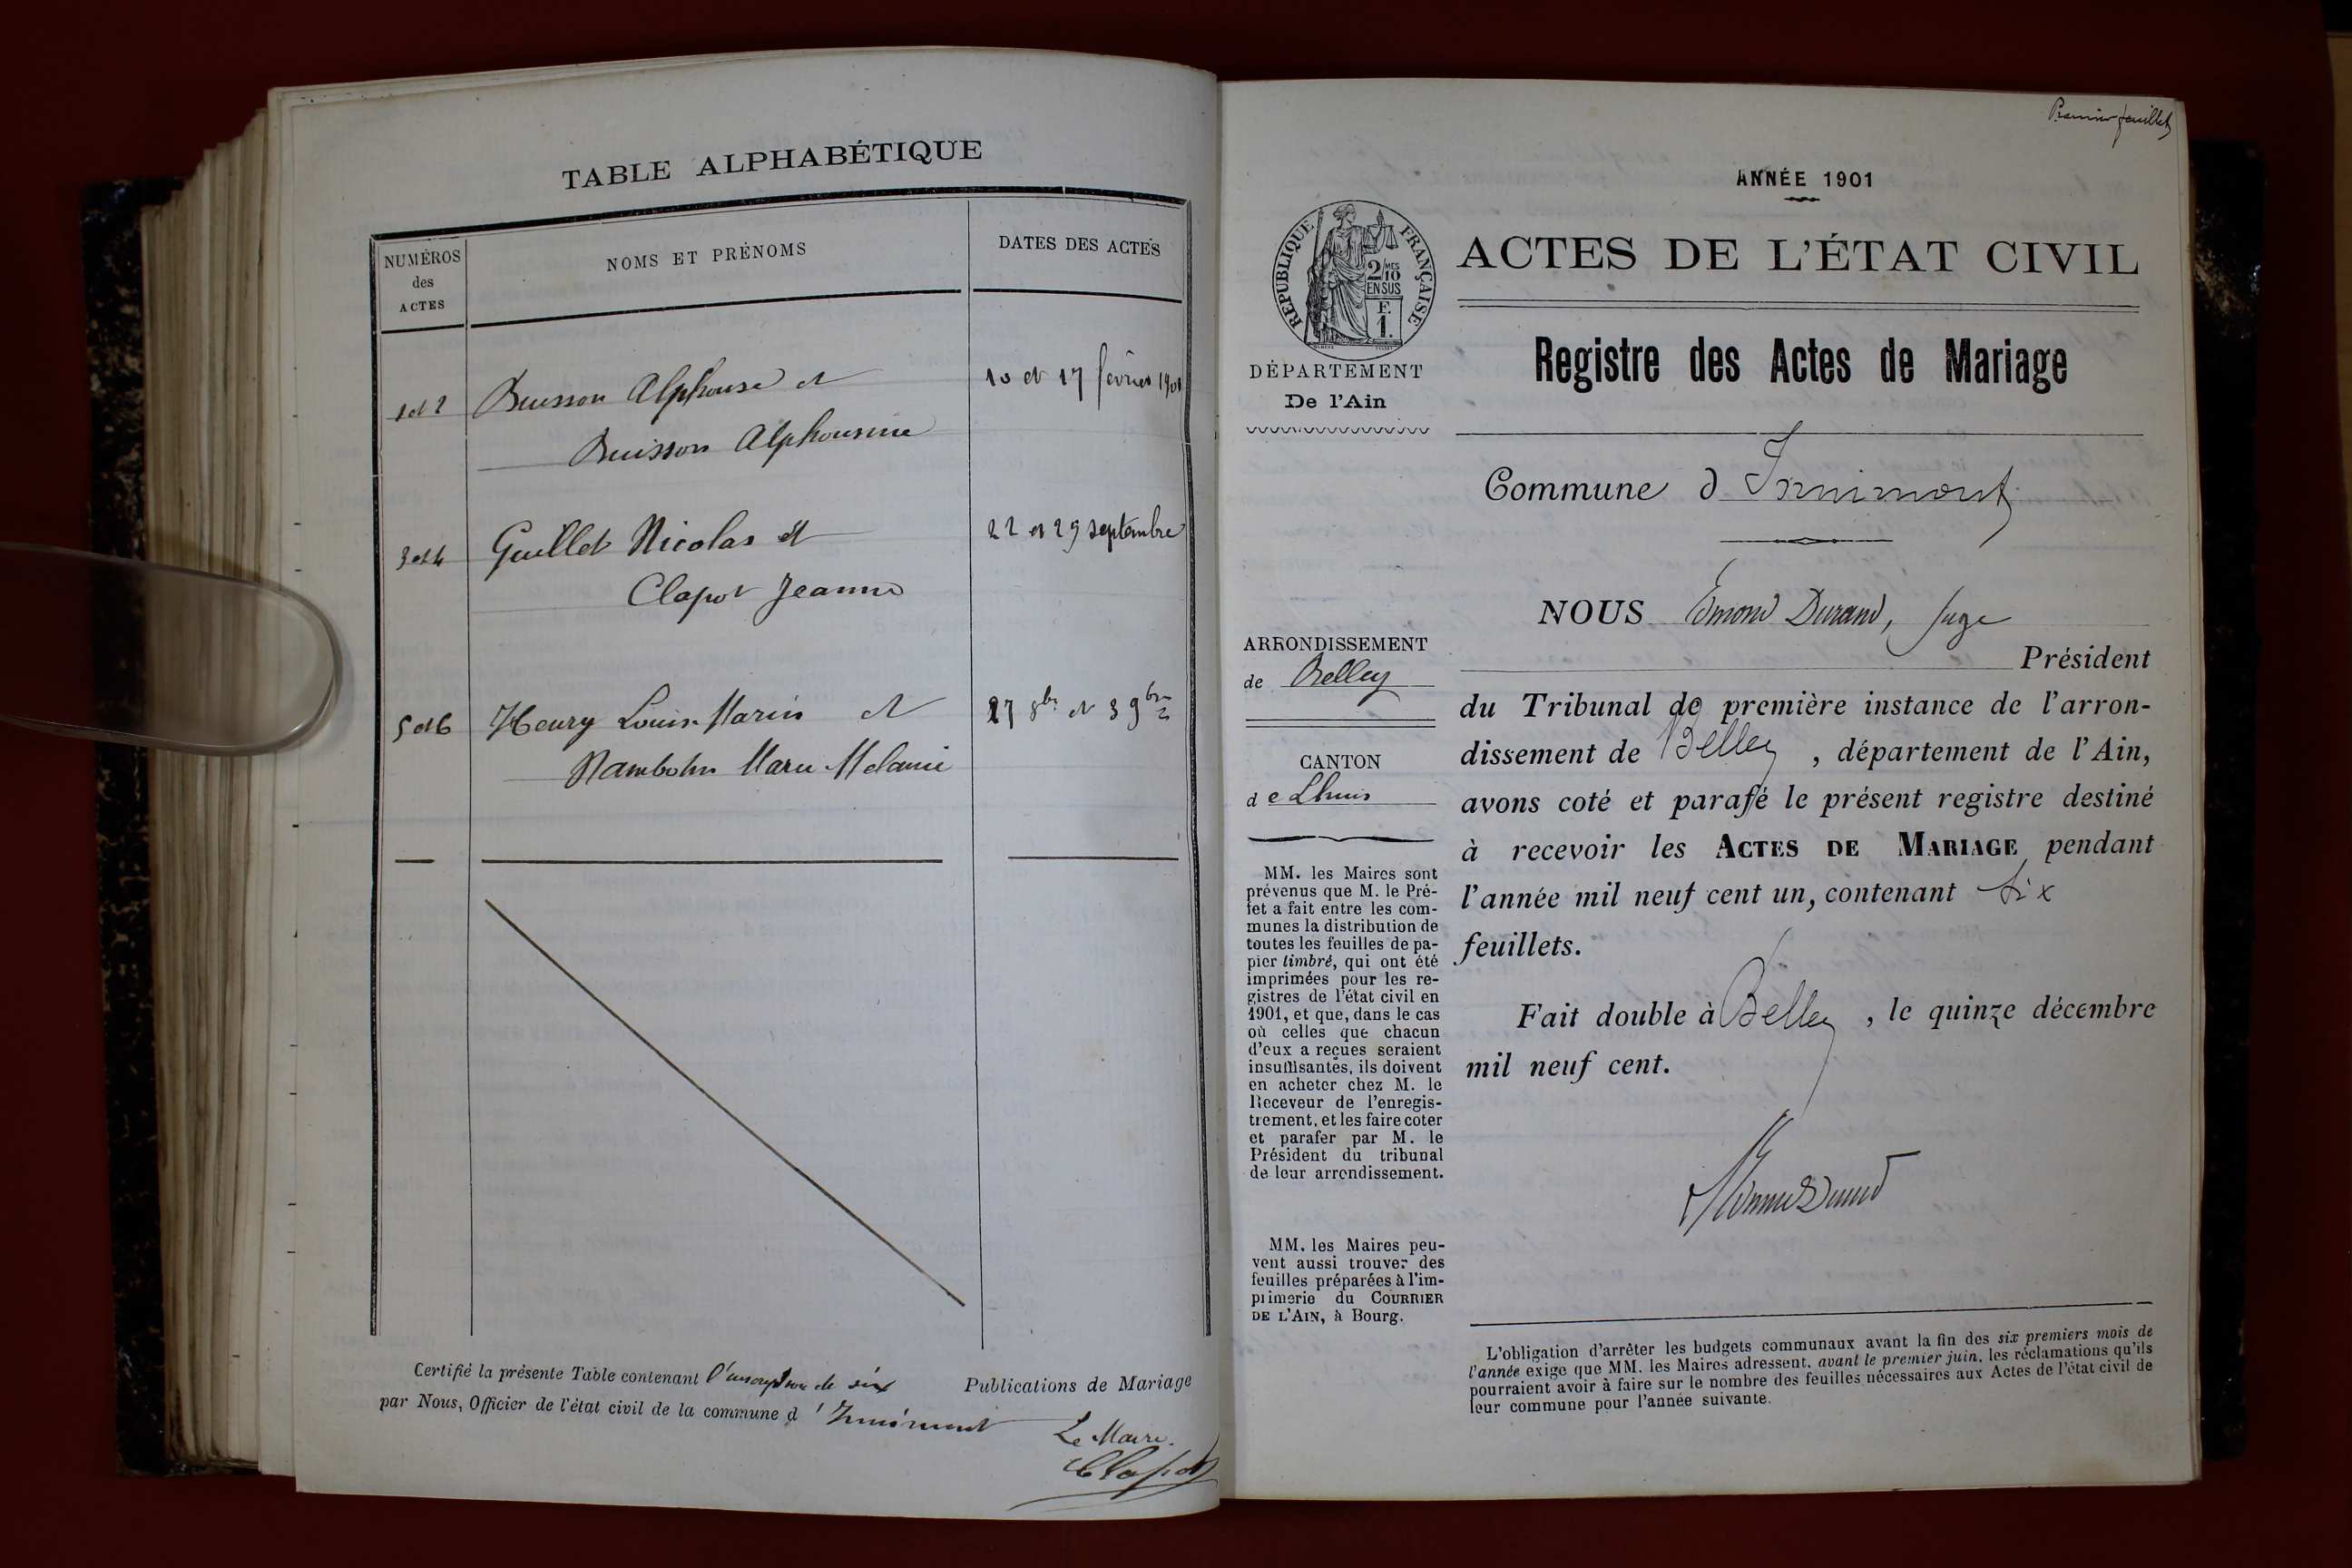 TABLE ALPHABÉTIQUE
NUMÉROS
des
ACTES
NOMS ET PRÉNOMS
DATES DES ACTES
1 et 2
Buisson Alphonse et
10 et 17 février 1901
Buisson Alphonsine
3 et 4
Guillet Nicolas et
22 et 29 septembre
Clapot Jeanne
5 et 6
Henry Louis Marin et
27 8bre et 3 9bre
Marie Melanie
Certifié la présente Table contenant l'inscription de six Publications de Mariage
par Nous, Officier de l'état civil de la commune d'Innimont
Le Maire.
Clapot
Premier feuillet
ANNÉE 1901
RÉPUBLIQUE FRANÇAISE
2/10MES
EN SUS
F.
1.
DÉPARTEMENT
De l'Ain
ACTES DE L'ÉTAT CIVIL
Registre des Actes de Mariage
Commune d Innimont
NOUS Edmond Durand, Juge
Président
du Tribunal de première instance de l'arron-
dissement de Belley, département de l'Ain,
avons coté et parafé le présent registre destiné
à recevoir les ACTES DE MARIAGE pendant
l'année mil neuf cent un, contenant six
feuillets.
Fait double à Belley, le quinze décembre
mil neuf cent.
ARRONDISSEMENT
de Belley
CANTON
de Lhuis
MM. les Maires sont
prévenus que M. le Pré-
fet a fait entre les com-
munes la distribution de
toutes les feuilles de pa-
pier timbré, qui ont été
imprimées pour les re-
gistres de l'état civil en
1901, et que, dans le cas
où celles que chacun
d'eux a reçues seraient
insuffisantes, ils doivent
en acheter chez M. le
Receveur de l'enregis-
trement, et les faire coter
et parafer par M. le
Président du tribunal
de leur arrondissement.
MM. les Maires peu-
vent aussi trouver des
feuilles préparées à l'im-
primerie du COURRIER
DE L'AIN, à Bourg.
L'obligation d'arrêter les budgets communaux avant la fin des six premiers mois de
l'année exige que MM. les Maires adressent, avant le premier juin, les réclamations qu'ils
pourraient avoir à faire sur le nombre des feuilles nécessaires aux Actes de l'état civil de
leur commune pour l'année suivante.